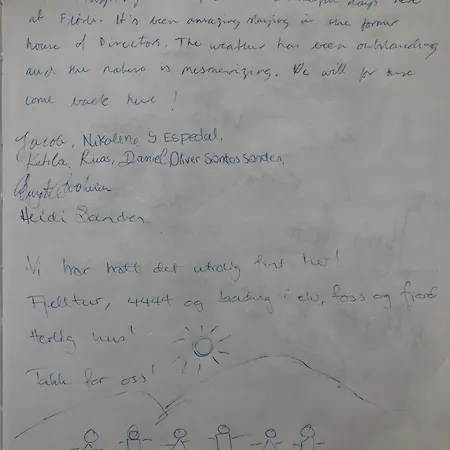 days here
at Flørli. It's been amazing staying in the former
house of Directors. The weather has been outstanding
and the nature is mesmerizing. We will for sure
come back here!
Jacob, Nikoline G. Espedal,
Ruas, Daniel Oliver Santos Sanden,
Heidi Sanden
Vi har hatt det utrolig fint her!
Fjelltur, 4444 og bading i elv, foss og fjord
Herlig hus!
Takk for oss!